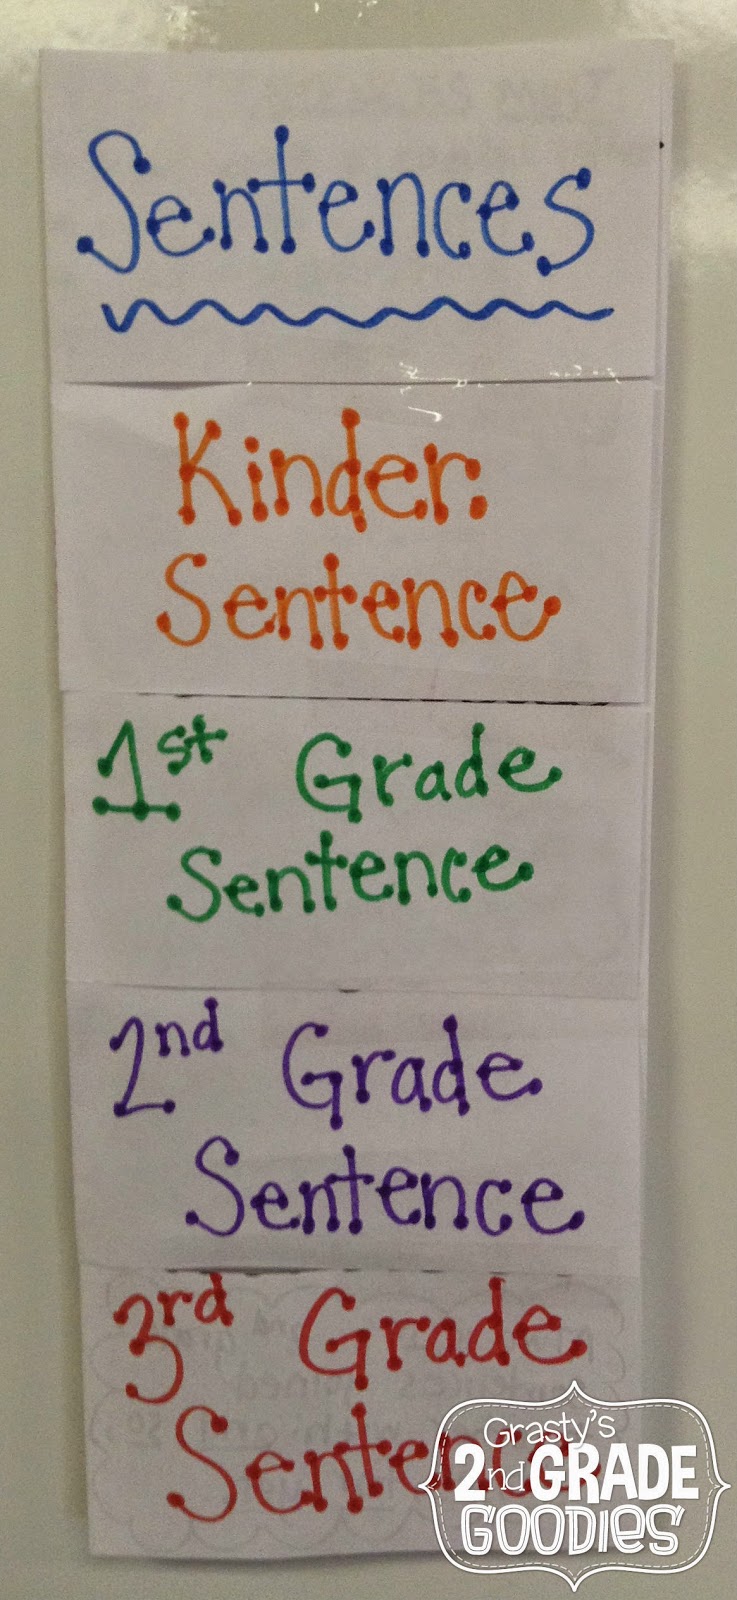 Sentences
Kinder.
Sentence
1st Grade
Sentence
2nd Grade
Sentence
3rd Grade
Sentence
Grasty's
2nd GRADE
GOODIES